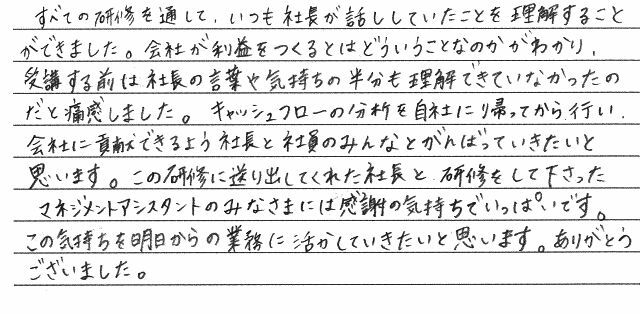 すべての研修を通して、いつも社長が話ししていたことを理解すること
ができました。会社が利益をつくるとはどういうことなのかがわかり、
受講する前は社長の言葉や気持ちの半分も理解できていなかったの
だと痛感しました。キャッシュフローの分析を自社にり帰ってから行い、
会社に貢献できるよう社長と社員のみんなとがんばっていきたいと
思います。この研修に送り出してくれた社長と、研修をして下さった
マネジメントアシスタントのみなさまには感謝の気持ちでいっぱいです。
この気持ちを明日からの業務に活かしていきたいと思います。ありがとう
ございました。